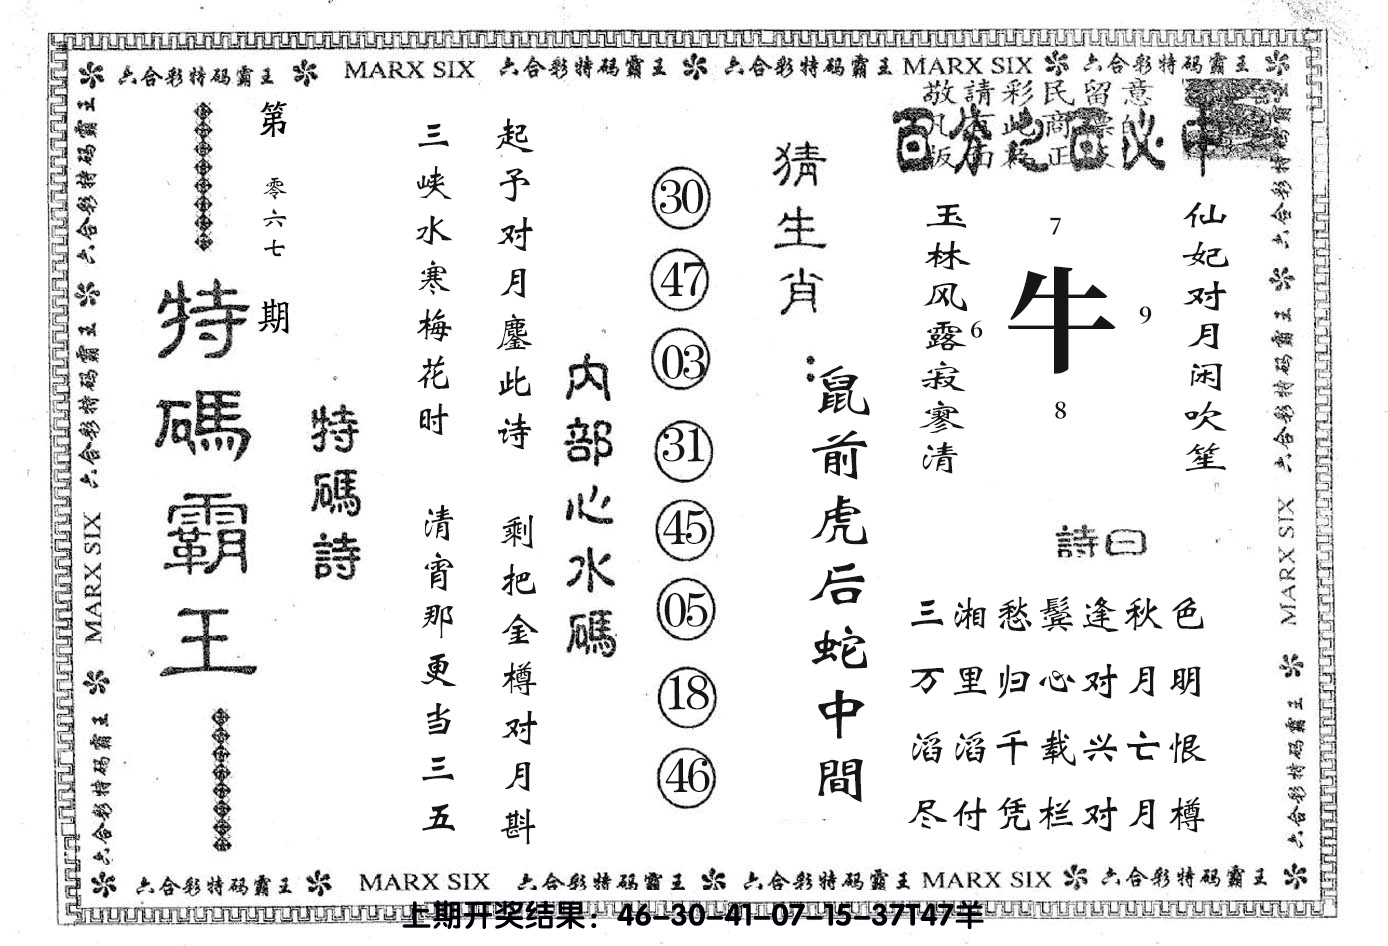 六合彩特码霸王 MARX SIX 六合彩特码霸王 六合彩特码霸王 MARX SIX 六合彩特码霸王
敬請彩民留意
百分之百必中
第零六七期
特碼霸王
特碼詩
三峡水寒梅花时
清宵那更当三五
起予对月鏖此诗
剩把金樽对月斟
内部心水碼
30
47
03
31
45
05
18
46
猜生肖:
鼠前虎后蛇中間
玉林风露寂寥清
7
6
牛
9
8
仙妃对月闲吹笙
詩曰
三湘愁鬓逢秋色
万里归心对月明
滔滔千载兴亡恨
尽付凭栏对月樽
六合彩特码霸王 六合彩特码霸王 MARX SIX 六合彩特码霸王
六合彩特码霸王 六合彩特码霸王 MARX SIX 六合彩特码霸王
六合彩特码霸王 MARX SIX 六合彩特码霸王 六合彩特码霸王 MARX SIX 六合彩特码霸王
上期开奖结果：46-30-41-07-15-37T47羊